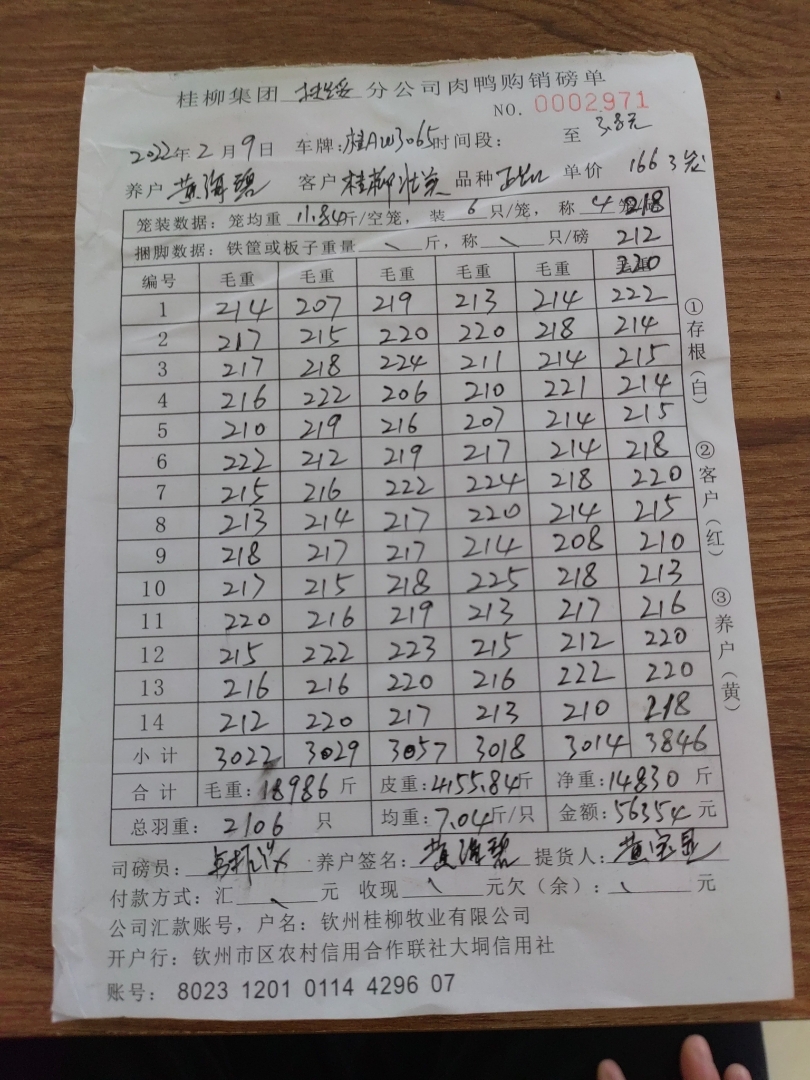 桂柳集团 扶绥 分公司肉鸭购销磅单
NO. 0002971
2022年2月9日 车牌：桂AW3065 时间段： 至 3.8元
养户 黄海碧 客户 桂柳 品种 单价 1663
笼装数据：笼均重 11.84斤/空笼，装 6 只/笼，称 4 笼/磅 218
捆脚数据：铁筐或板子重量 斤，称 只/磅 212
编号 毛重 毛重 毛重 毛重 毛重 220
1 214 207 219 213 214 222
2 217 215 220 220 218 214
3 217 218 224 211 214 215
4 216 222 206 210 221 214
5 210 219 216 207 214 215
6 222 212 219 217 214 218
7 215 216 222 224 218 220
8 213 214 217 220 214 215
9 218 217 217 214 208 210
10 217 215 218 225 218 213
11 220 216 219 213 217 216
12 215 222 223 215 212 220
13 216 216 220 216 222 220
14 212 220 217 213 210 218
小计 3022 3029 3057 3018 3014 3846
合计 毛重：18986 斤 皮重：4155.84斤 净重：14830 斤
总羽重：2106 只 均重：7.04斤/只 金额：56354 元
司磅员： 养户签名：黄海碧 提货人：黄宝显
付款方式：汇 元 收现 元欠（余）： 元
公司汇款账号，户名：钦州桂柳牧业有限公司
开户行：钦州市区农村信用合作联社大垌信用社
账号： 8023 1201 0114 4296 07
①存根（白）
②客户（红）
③养户（黄）